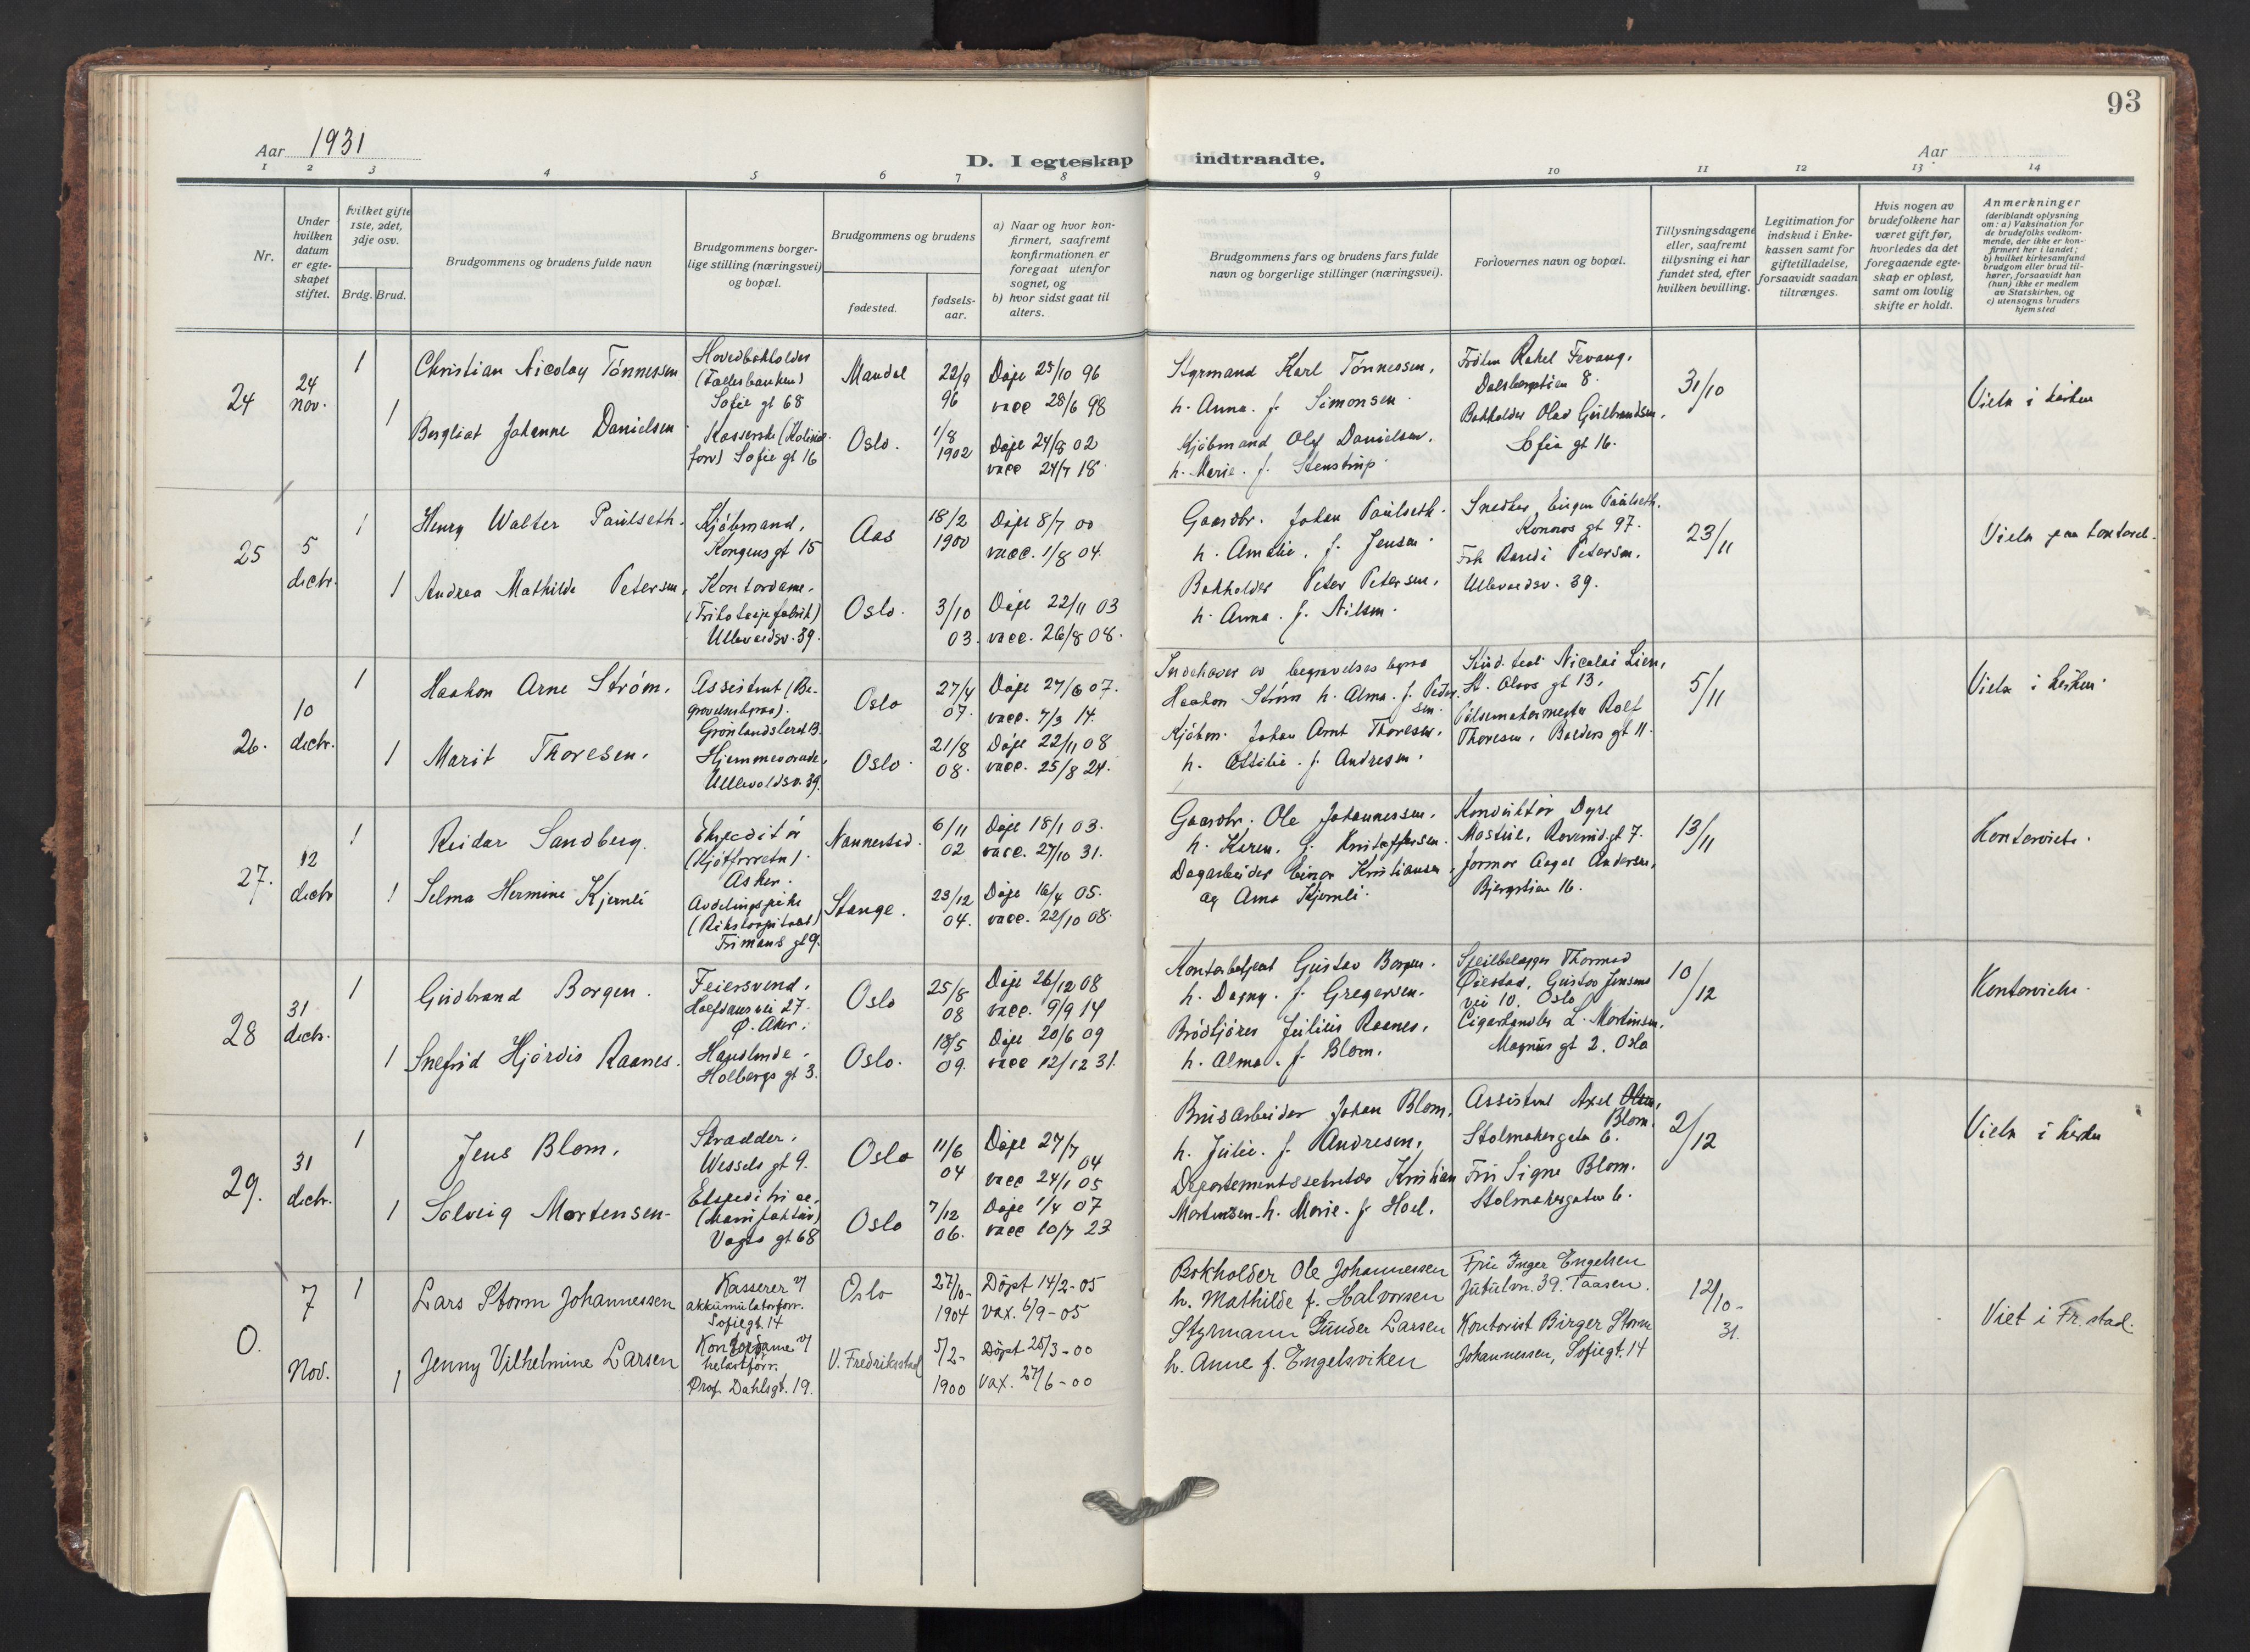 93
Aar 1931
Aar
D. I egteskap indtraadte.
1 2 3 4 5 6 7 8 9 10 11 12 13 14
Nr.
Under hvilken datum er egteskapet stiftet.
Hvilket gifte 1ste, 2det, 3dje osv.
Brdg. Brud.
Brudgommens og brudens fulde navn
Brudgommens borgerlige stilling (næringsvei) og bopæl.
Brudgommens og brudens
fødested.
fødselsaar.
a) Naar og hvor konfirmert, saafremt konfirmationen er foregaat utenfor sognet, og
b) hvor sidst gaat til alters.
Brudgommens fars og brudens fars fulde navn og borgerlige stillinger (næringsvei).
Forlovernes navn og bopæl.
Tillysningsdagene eller, saafremt tillysning ei har fundet sted, efter hvilken bevilling.
Legitimation for indskud i Enkekassen samt for giftetilladelse, forsaavidt saadan tiltrænges.
Hvis nogen av brudefolkene har været gift før, hvorledes da det foregaaende egteskap er opløst, samt om lovlig skifte er holdt.
Anmerkninger
(deriblandt oplysning om: a) Vaksination for de brudefolks vedkommende, der ikke er konfirmert her i landet; b) hvilket kirkesamfund brudgom eller brud tilhører, forsaavidt han (hun) ikke er medlem av Statskirken, og c) utensogns bruders hjemsted
24
24 nov.
1
Christian Nicolay Tönnessen
Hovedbokholder
(Fællesbanken)
Sofie gt 68
Mandal
22/9 96
Döpt 25/10 96
vacc 28/6 98
Styrmand Karl Tönnessen,
h. Anna. f. Simonsen.
Fröken Rakel Fevang,
Dalsbergstien 8.
31/10
Viela i kirken
1
Bergliot Johanne Danielsen
Kasserske (Kolonialforr) Sofie gt 16
Oslo.
1/8 1902
Döpt 24/8 02
vacc 24/7 18
Kjöbmand Olaf Danielsen,
h. Marie. f. Stenstrup
Bokholder Olav Gulbrandsen,
Sofie gt 16.
25
5 dectr.
1
Henry Walter Paulseth.
Kjöbmand,
Kongens gt 15
Aas
18/2 1900
Döpt 8/7 00
vacc. 1/8 04.
Gaardbr. Johan Paulseth.
h. Amalie. f. Jensen.
Snedker Eugen Paulseth,
Konows gt 97.
23/11
Viela paa kontoret.
1
Andrea Mathilde Petersen,
Kontordame,
(Trikotasjefabrik)
Ullevaldsv. 39.
Oslo.
3/10 03.
Döpt 22/11 03
vacc. 26/8 08.
Bokholder Peter Petersen,
h. Anna. f. Nilsen.
Frk Randi Petersen,
Ullevaldsv. 39.
26.
10 dectr.
1
Haakon Arne Ström,
Assistent (Begravelsesbyraa).
Grönlandsleret 13.
Oslo
27/4 07.
Döpt 27/6 07.
vacc. 7/3 14.
Indehaver av begravelsesbyraa
Haakon Ström h. Alma. f. Pedersen.
Stud. teol. Nicolai Lien,
St. Olavs gt 13,
5/11
Viela i kirken.
1
Marit Thoresen.
Hjemmeværende,
Ullevaldsv. 39.
Oslo.
21/8 08.
Döpt 22/11 08
vacc. 25/8 24.
Kjöbm. Johan Arnt Thoresen,
h. Ottilie. f. Andresen.
Pölsemakermester Rolf
Thoresen, Balders gt 11.
27.
12 dectr
1
Reidar Sandberg.
Ekspeditör
(Kjötforretn).
Asker.
Nannestad.
6/11 02
Döpt 18/1 03.
vacc. 27/10 31.
Gaardbr. Ole Johannessen,
h. Karen. f. Kristoffersen.
Konduktör Dyre
Mostue, Ravnindgt 7.
13/11
Kontorviels.
1
Selma Hermine Kjernli
Avdelingspike
(Rikshospitalet)
Frimans gt 9.
Stange.
23/12 04.
Döpt 16/4 05.
vacc. 22/10 08.
Dagarbeider Einar Kristiansen
og Anna Kjernli.
Jormor Aagot Andersen,
Bjergstien 16.
28
31 dectr.
1
Gudbrand Borgen.
Feiersvend,
Ö. Aker.
Oslo
25/8 08
Döpt 26/12 08
vacc. 9/9 14
Kontorbetjent Gustav Borgen.
h. Dagny. f. Gregersen.
Speilbelægger Thormod
Öiestad, Gustav Jensens
vei 10. Oslo
10/12
Kontorviels.
1
Snefrid Hjördis Raanes.
Handlende.
Holbergs gt 3.
Oslo.
18/5 09.
Döpt 20/6 09
vacc 12/12 31.
Brödkjörer Julius Raanes,
h. Alma. f. Blom.
Cigarhandler L. Martinsen,
Magnus gt 2. Oslo
29.
31 dectr.
1
Jens Blom,
Skrædder,
Wessels gt 9.
Oslo
11/6 04
Döpt 27/7 04
vacc 24/1 05
Brusarbeider Johan Blom,
h. Julie. f. Andresen,
Assistent Axel Olsen, Blom,
Stolmakergata 6.
2/12
Viela i kirken
1
Solveig Mortensen
Ekspeditrice,
(Manufaktur)
Vogts gt 68
Oslo
7/12 06.
Döpt 1/4 07
vacc 10/7 23
Departementssekretær Kristian
Mortensen. h. Marie. f. Hoel.
Fru Signe Blom.
Stolmakergaten 6.
O.
7 Nov.
1
Lars Storm Johannessen
Kasserer v/
akkumulatorforr.
Sofiegt. 14
Oslo
27/10- 1904
Döpt 14/2-05
Vax. 6/9-05
Bokholder Ole Johannessen
h. Mathilde f. Halvorsen
Fru Inger Engelsen
Jutulvn. 39. Taasen.
12/10- 31.
Viet i Fr.stad.
1
Jenny Vilhelmine Larsen
Kontordame v/
helsetforr.
Prof. Dahlsgt. 19.
V. Fredrikstad
5/2- 1900
Döpt 25/3-00
Vax. 27/6-00
Styrmann Gunder Larsen
h. Anne f. Engelsviken
Kontorist Birger Storm
Johannessen, Sofiegt. 14